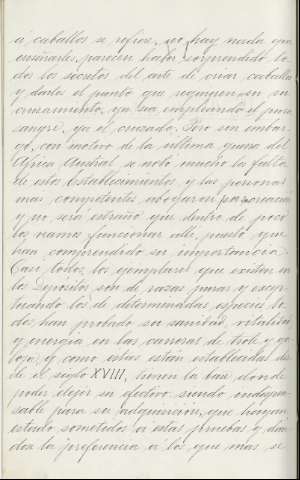 á caballos se refiere, no hay nada que
enseñarles, parecen haber sorprendido to-
dos los secretos del arte de criar caballos
y darles el punto que requieren en su
cruzamiento, ya sea empleando el pura
sangre, ya el cruzado. Pero sin embar-
go, con motivo de la ultima guerra del
Africa Austral se notó mucho la falta
de estos Establecimientos y las personas
mas competentes abogaron por su creación
y no será extraño que dentro de poco
los veamos funcionar allí, puesto que
han comprendido su importancia.
Casi todos los ejemplares que existen en
los Depositos son de razas puras y excep-
tuando los de determinadas especies to-
dos han probado su sanidad, vitalidad
y energia en las carreras de trote y ga-
lope; y como estas están establecidas des-
de el siglo XVIII, tienen la base donde
poder elejir su efectivo, siendo indispen-
sable para su adquisicion, que hayan
estado sometidos á estas pruebas y dan-
dose la preferencia á los que mas se